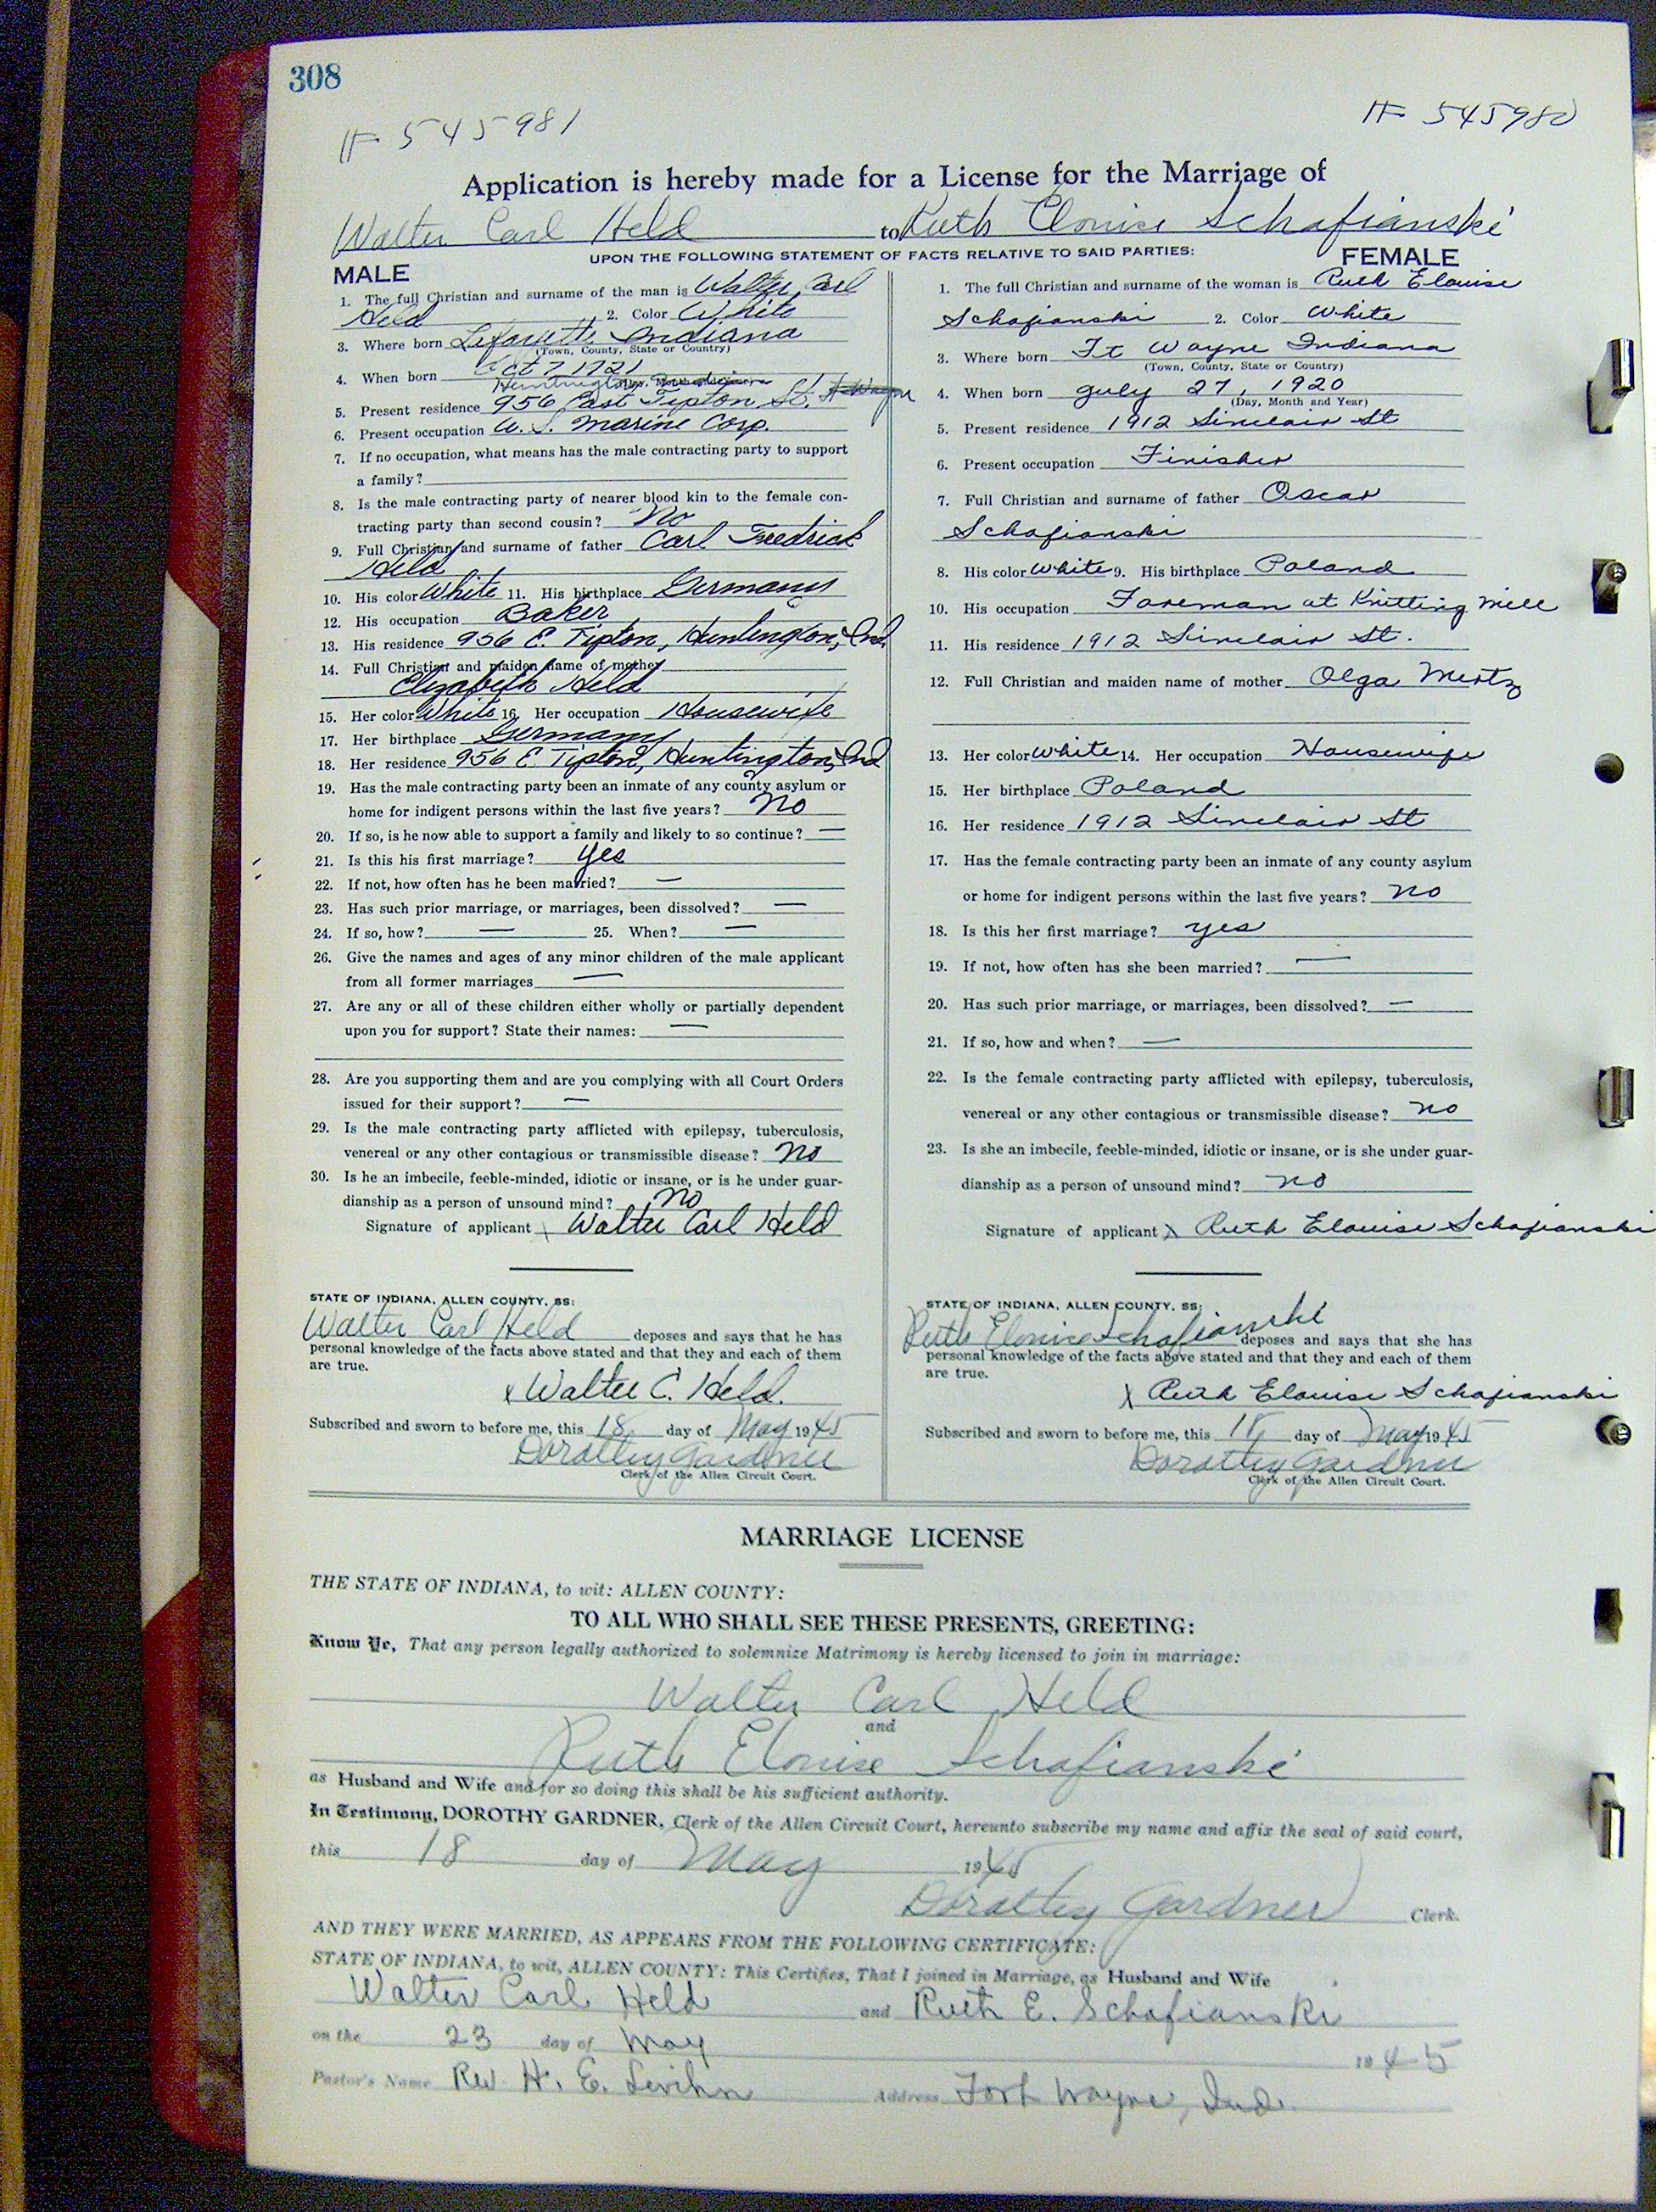 308
# 545981
# 545980
Application is hereby made for a License for the Marriage of
Walter Carl Held to Ruth Elouise Schafianski
UPON THE FOLLOWING STATEMENT OF FACTS RELATIVE TO SAID PARTIES:
MALE
1. The full Christian and surname of the man is Walter Carl
Held 2. Color White
3. Where born Lafayette Indiana
(Town, County, State or Country)
4. When born Oct 7 1921
Huntington
5. Present residence 956 East Tipton St. Ft Wayne
6. Present occupation U. S. Marine Corp.
7. If no occupation, what means has the male contracting party to support
a family?
8. Is the male contracting party of nearer blood kin to the female con-
tracting party than second cousin? No
9. Full Christian and surname of father Carl Fredrick
Held
10. His color White 11. His birthplace Germany
12. His occupation Baker
13. His residence 956 E. Tipton, Huntington, Ind.
14. Full Christian and maiden name of mother
Elizabeth Held
15. Her color White 16. Her occupation Housewife
17. Her birthplace Germany
18. Her residence 956 E Tipton, Huntington, Ind
19. Has the male contracting party been an inmate of any county asylum or
home for indigent persons within the last five years? No
20. If so, is he now able to support a family and likely to so continue? —
21. Is this his first marriage? yes
22. If not, how often has he been married? —
23. Has such prior marriage, or marriages, been dissolved? —
24. If so, how? — 25. When? —
26. Give the names and ages of any minor children of the male applicant
from all former marriages —
27. Are any or all of these children either wholly or partially dependent
upon you for support? State their names: —
28. Are you supporting them and are you complying with all Court Orders
issued for their support? —
29. Is the male contracting party afflicted with epilepsy, tuberculosis,
venereal or any other contagious or transmissible disease? No
30. Is he an imbecile, feeble-minded, idiotic or insane, or is he under guar-
dianship as a person of unsound mind? No
Signature of applicant x Walter Carl Held
STATE OF INDIANA, ALLEN COUNTY, SS:
Walter Carl Held deposes and says that he has
personal knowledge of the facts above stated and that they and each of them
are true.
x Walter C. Held.
Subscribed and sworn to before me, this 18 day of May 1945
Dorothy Gardner
Clerk of the Allen Circuit Court.
FEMALE
1. The full Christian and surname of the woman is Ruth Elouise
Schafianski 2. Color White
3. Where born Ft Wayne Indiana
(Town, County, State or Country)
4. When born July 27, 1920
(Day, Month and Year)
5. Present residence 1912 Sinclair St
6. Present occupation Finisher
7. Full Christian and surname of father Oscar
Schafianski
8. His color White 9. His birthplace Poland
10. His occupation Foreman at Knitting Mill
11. His residence 1912 Sinclair St.
12. Full Christian and maiden name of mother Olga Mertz
13. Her color White 14. Her occupation Housewife
15. Her birthplace Poland
16. Her residence 1912 Sinclair St
17. Has the female contracting party been an inmate of any county asylum
or home for indigent persons within the last five years? no
18. Is this her first marriage? yes
19. If not, how often has she been married? —
20. Has such prior marriage, or marriages, been dissolved? —
21. If so, how and when? —
22. Is the female contracting party afflicted with epilepsy, tuberculosis,
venereal or any other contagious or transmissible disease? no
23. Is she an imbecile, feeble-minded, idiotic or insane, or is she under guar-
dianship as a person of unsound mind? no
Signature of applicant x Ruth Elouise Schafianski
STATE OF INDIANA, ALLEN COUNTY, SS:
Ruth Elouise Schafianski deposes and says that she has
personal knowledge of the facts above stated and that they and each of them
are true.
x Ruth Elouise Schafianski
Subscribed and sworn to before me, this 18 day of May 1945
Dorothy Gardner
Clerk of the Allen Circuit Court.
MARRIAGE LICENSE
THE STATE OF INDIANA, to wit: ALLEN COUNTY:
TO ALL WHO SHALL SEE THESE PRESENTS, GREETING:
Know Ye, That any person legally authorized to solemnize Matrimony is hereby licensed to join in marriage:
Walter Carl Held
and
Ruth Elouise Schafianski
as Husband and Wife and for so doing this shall be his sufficient authority.
In Testimony, DOROTHY GARDNER, Clerk of the Allen Circuit Court, hereunto subscribe my name and affix the seal of said court,
this 18 day of May 1945
Dorothy Gardner Clerk.
AND THEY WERE MARRIED, AS APPEARS FROM THE FOLLOWING CERTIFICATE:
STATE OF INDIANA, to wit, ALLEN COUNTY: This Certifies, That I joined in Marriage, as Husband and Wife
Walter Carl Held and Ruth E. Schafianski
on the 23 day of May 1945
Pastor's Name Rev. H. E. Levihn Address Fort Wayne, Ind.